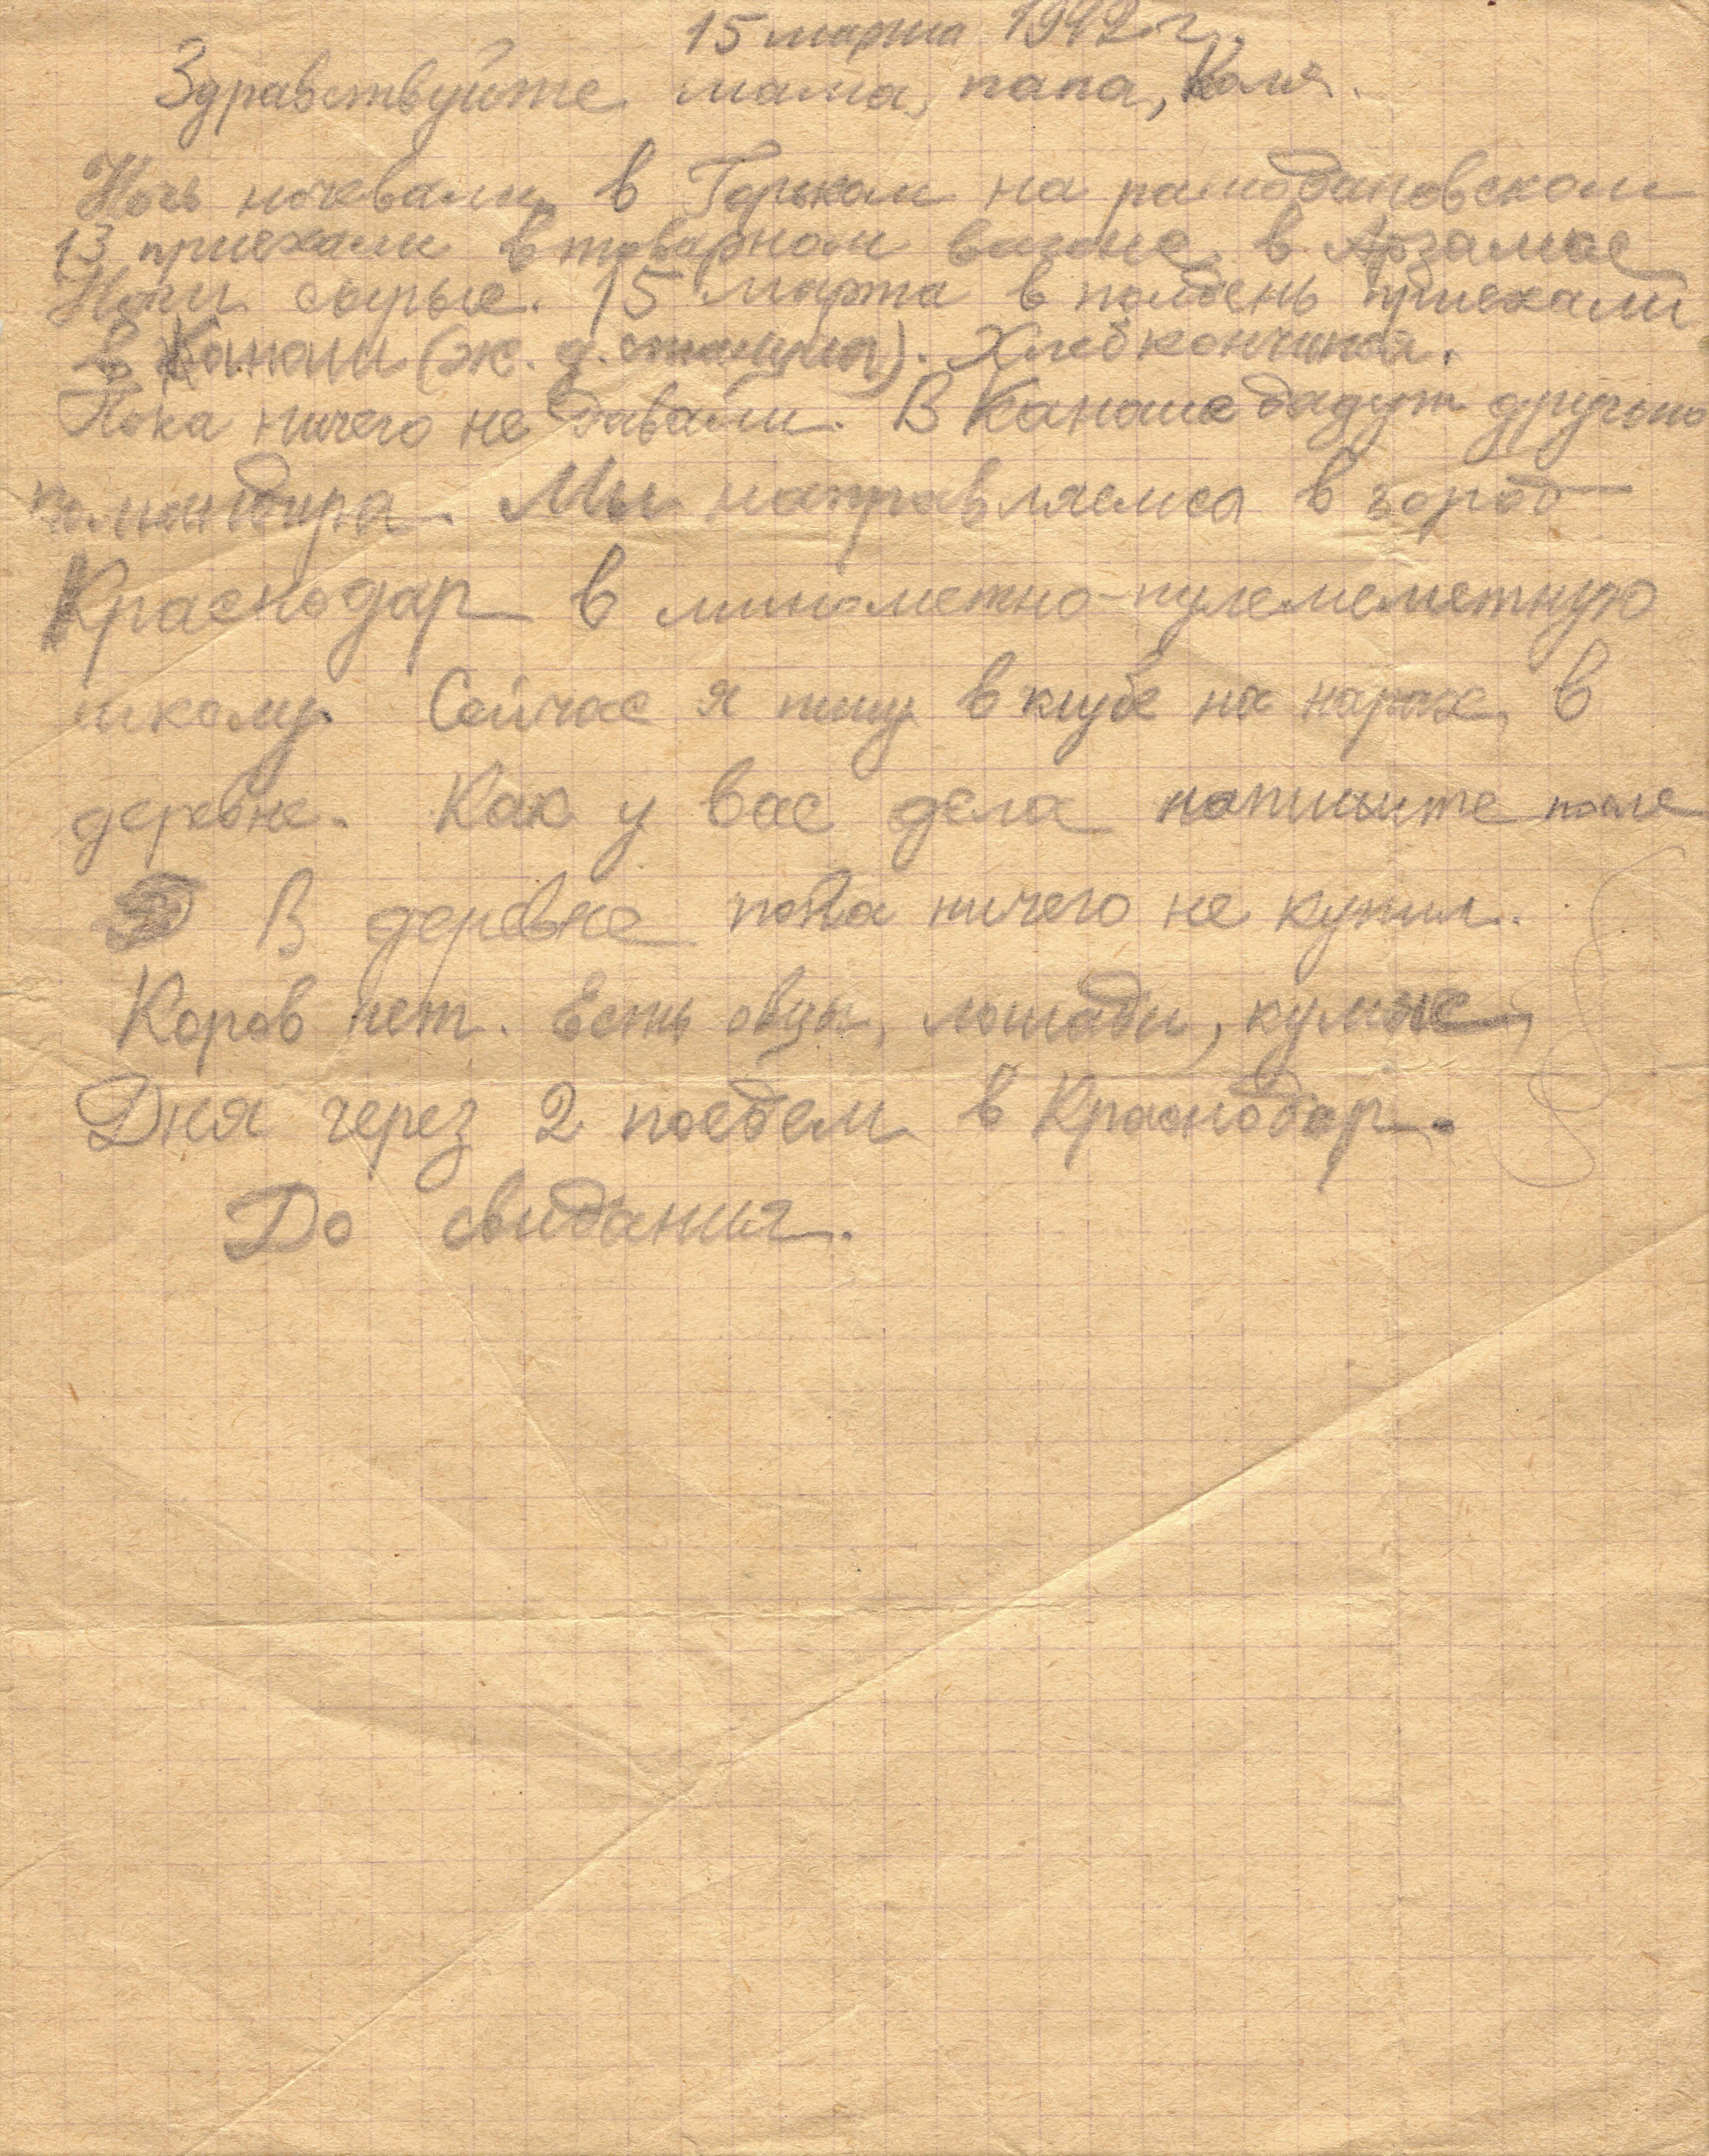 15 марта 1942 г.
Здравствуйте мама, папа, Коля.
Ночь ночевали в Горьком на ромодановском
13 приехали в товарном вагоне в Арзамас
Ночи сырые. 15 марта в полдень приехали
в Канаш (ж. д. станция). Хлеб кончился.
Пока ничего не давали. В Канаше дадут другого
командира. Мы направляемся в город
Краснодар в минометно-пулеметную
школу. Сейчас я пишу в клубе на нарах, в
деревне. Как у вас дела напишите после
В деревне пока ничего не купил.
Коров нет. Есть овцы, лошади, кумыс,
Дня через 2 поедем в Краснодар.
До свидания.